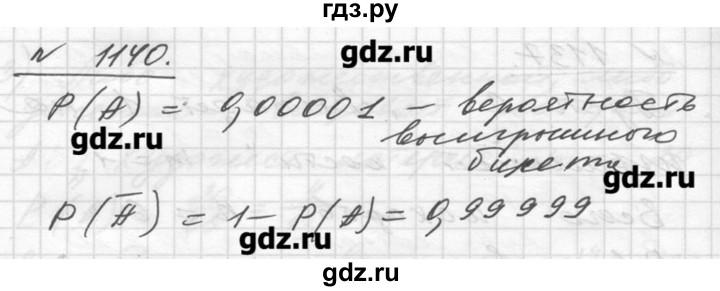 гдз.ру
gdz.ru
N 1140.
P(A) = 0,00001 – вероятность
выигрышного
билета
gdz.ru
gdz.ru
P(Ā) = 1 – P(A) = 0,99999
gdz.ru
gdz.ru